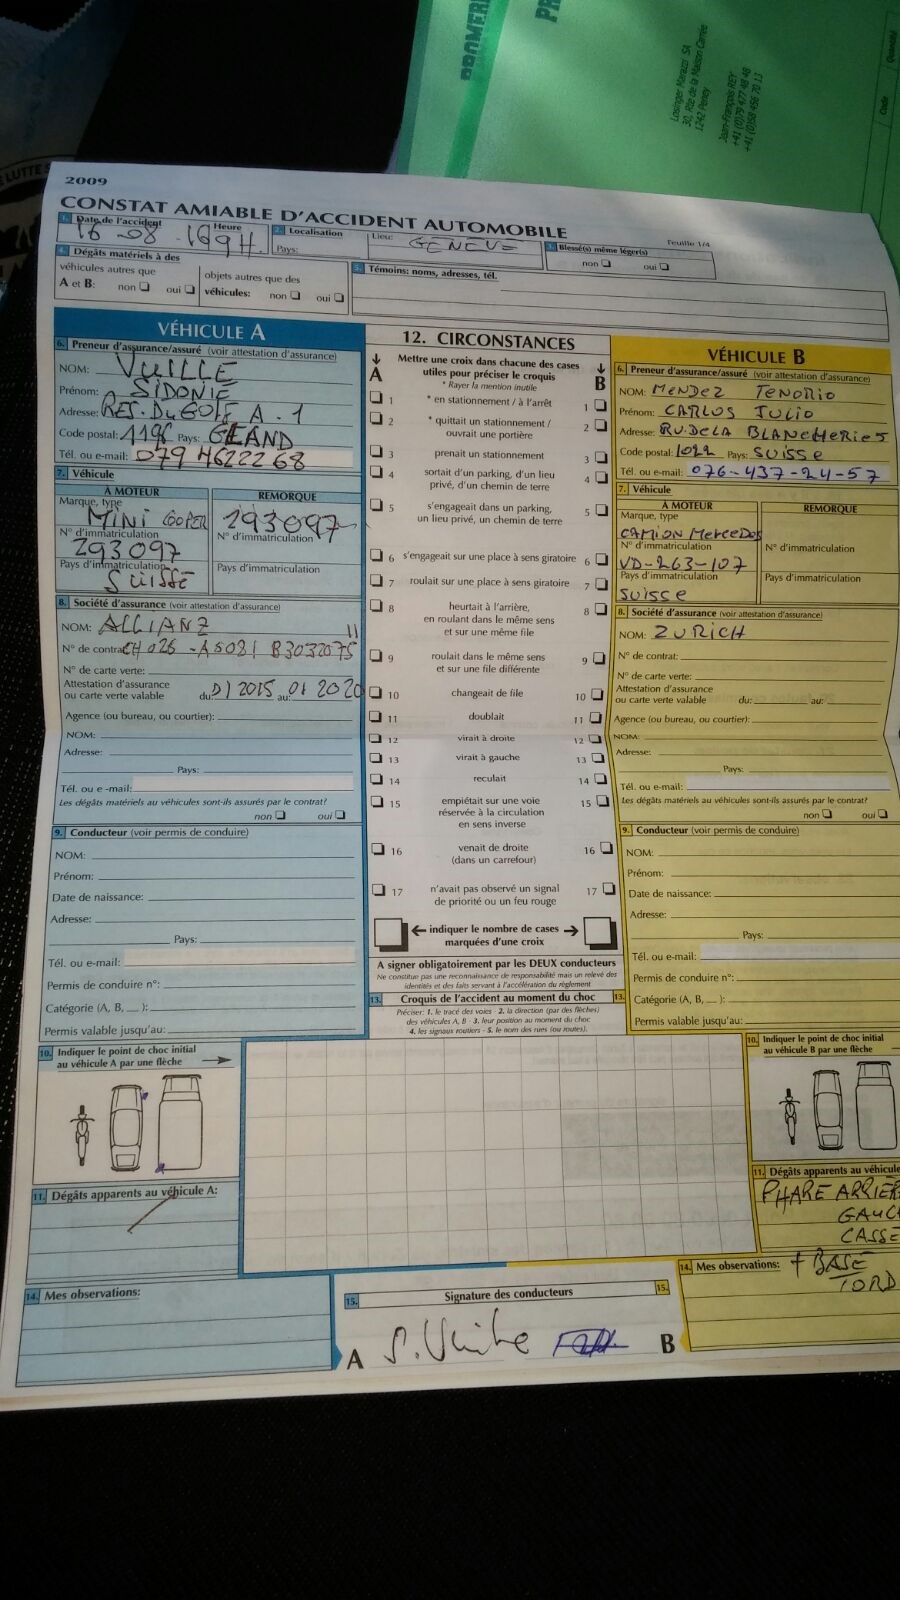 PROMER
PR
Losinger Marazzi SA
30, Rte de la Maison Carrée
1242 Peney
Jean-François REY
+41 (0)79 477 48 48
+41 (0)58 456 70 13
Code
Quantité
E LUTTE S
2009
CONSTAT AMIABLE D'ACCIDENT AUTOMOBILE
Feuille 1/4
1. Date de l'accident Heure
16 08 .16 9H.
2. Localisation
Pays:
Lieu: GENEVE
3. Blessé(s) même léger(s)
non oui
4. Dégâts matériels à des
véhicules autres que
A et B: non oui
objets autres que des
véhicules: non oui
5. Témoins: noms, adresses, tél.
VÉHICULE A
6. Preneur d'assurance/assuré (voir attestation d'assurance)
NOM: VUILLE
Prénom: SIDONIE
Adresse: RES. DU GOLF A. 1
Code postal: 1196 Pays: GLAND
Tél. ou e-mail: 079 4622268
7. Véhicule
A MOTEUR
Marque, type
MINI COOPER
N° d'immatriculation
293097
Pays d'immatriculation
SUISSE
REMORQUE
293097
N° d'immatriculation
Pays d'immatriculation
8. Société d'assurance (voir attestation d'assurance)
NOM: ALLIANZ
N° de contrat: CH 026 - A5081 B3032075
N° de carte verte:
Attestation d'assurance
ou carte verte valable du: 01 2015 au: 01 2020
Agence (ou bureau, ou courtier):
NOM:
Adresse:
Pays:
Tél. ou e-mail:
Les dégâts matériels au véhicules sont-ils assurés par le contrat?
non oui
9. Conducteur (voir permis de conduire)
NOM:
Prénom:
Date de naissance:
Adresse:
Pays:
Tél. ou e-mail:
Permis de conduire n°:
Catégorie (A, B, __ ):
Permis valable jusqu'au:
10. Indiquer le point de choc initial
au véhicule A par une flèche
11. Dégâts apparents au véhicule A:
14. Mes observations:
12. CIRCONSTANCES
Mettre une croix dans chacune des cases
utiles pour préciser le croquis
* Rayer la mention inutile
A B
1 * en stationnement / à l'arrêt 1
2 * quittait un stationnement / 2
ouvrait une portière
3 prenait un stationnement 3
4 sortait d'un parking, d'un lieu 4
privé, d'un chemin de terre
5 s'engageait dans un parking, 5
un lieu privé, un chemin de terre
6 s'engageait sur une place à sens giratoire 6
7 roulait sur une place à sens giratoire 7
8 heurtait à l'arrière, 8
en roulant dans le même sens
et sur une même file
9 roulait dans le même sens 9
et sur une file différente
10 changeait de file 10
11 doublait 11
12 virait à droite 12
13 virait à gauche 13
14 reculait 14
15 empiétait sur une voie 15
réservée à la circulation
en sens inverse
16 venait de droite 16
(dans un carrefour)
17 n'avait pas observé un signal 17
de priorité ou un feu rouge
← indiquer le nombre de cases →
marquées d'une croix
A signer obligatoirement par les DEUX conducteurs
Ne constitue pas une reconnaissance de responsabilité mais un relevé des
identités et des faits servant à l'accélération du règlement
13. Croquis de l'accident au moment du choc 13.
Préciser: 1. le tracé des voies - 2. la direction (par des flèches)
des véhicules A, B - 3. leur position au moment du choc
4. les signaux routiers - 5. le nom des rues (ou routes).
15. Signature des conducteurs 15.
A S. Vuille B
VÉHICULE B
6. Preneur d'assurance/assuré (voir attestation d'assurance)
NOM: MENDEZ TENORIO
Prénom: CARLOS JULIO
Adresse: RU. DE LA BLANCHERIE 5
Code postal: 1022 Pays: SUISSE
Tél. ou e-mail: 076-437-24-57
7. Véhicule
A MOTEUR
Marque, type
CAMION MERCEDES
N° d'immatriculation
VD-263-107
Pays d'immatriculation
SUISSE
REMORQUE
N° d'immatriculation
Pays d'immatriculation
8. Société d'assurance (voir attestation d'assurance)
NOM: ZURICH
N° de contrat:
N° de carte verte:
Attestation d'assurance
ou carte verte valable du: au:
Agence (ou bureau, ou courtier):
NOM:
Adresse:
Pays:
Tél. ou e-mail:
Les dégâts matériels au véhicules sont-ils assurés par le contrat?
non oui
9. Conducteur (voir permis de conduire)
NOM:
Prénom:
Date de naissance:
Adresse:
Pays:
Tél. ou e-mail:
Permis de conduire n°:
Catégorie (A, B, __ ):
Permis valable jusqu'au:
10. Indiquer le point de choc initial
au véhicule B par une flèche
11. Dégâts apparents au véhicule
PHARE ARRIERE
GAUCH
CASSE
14. Mes observations: + BASE
TORD